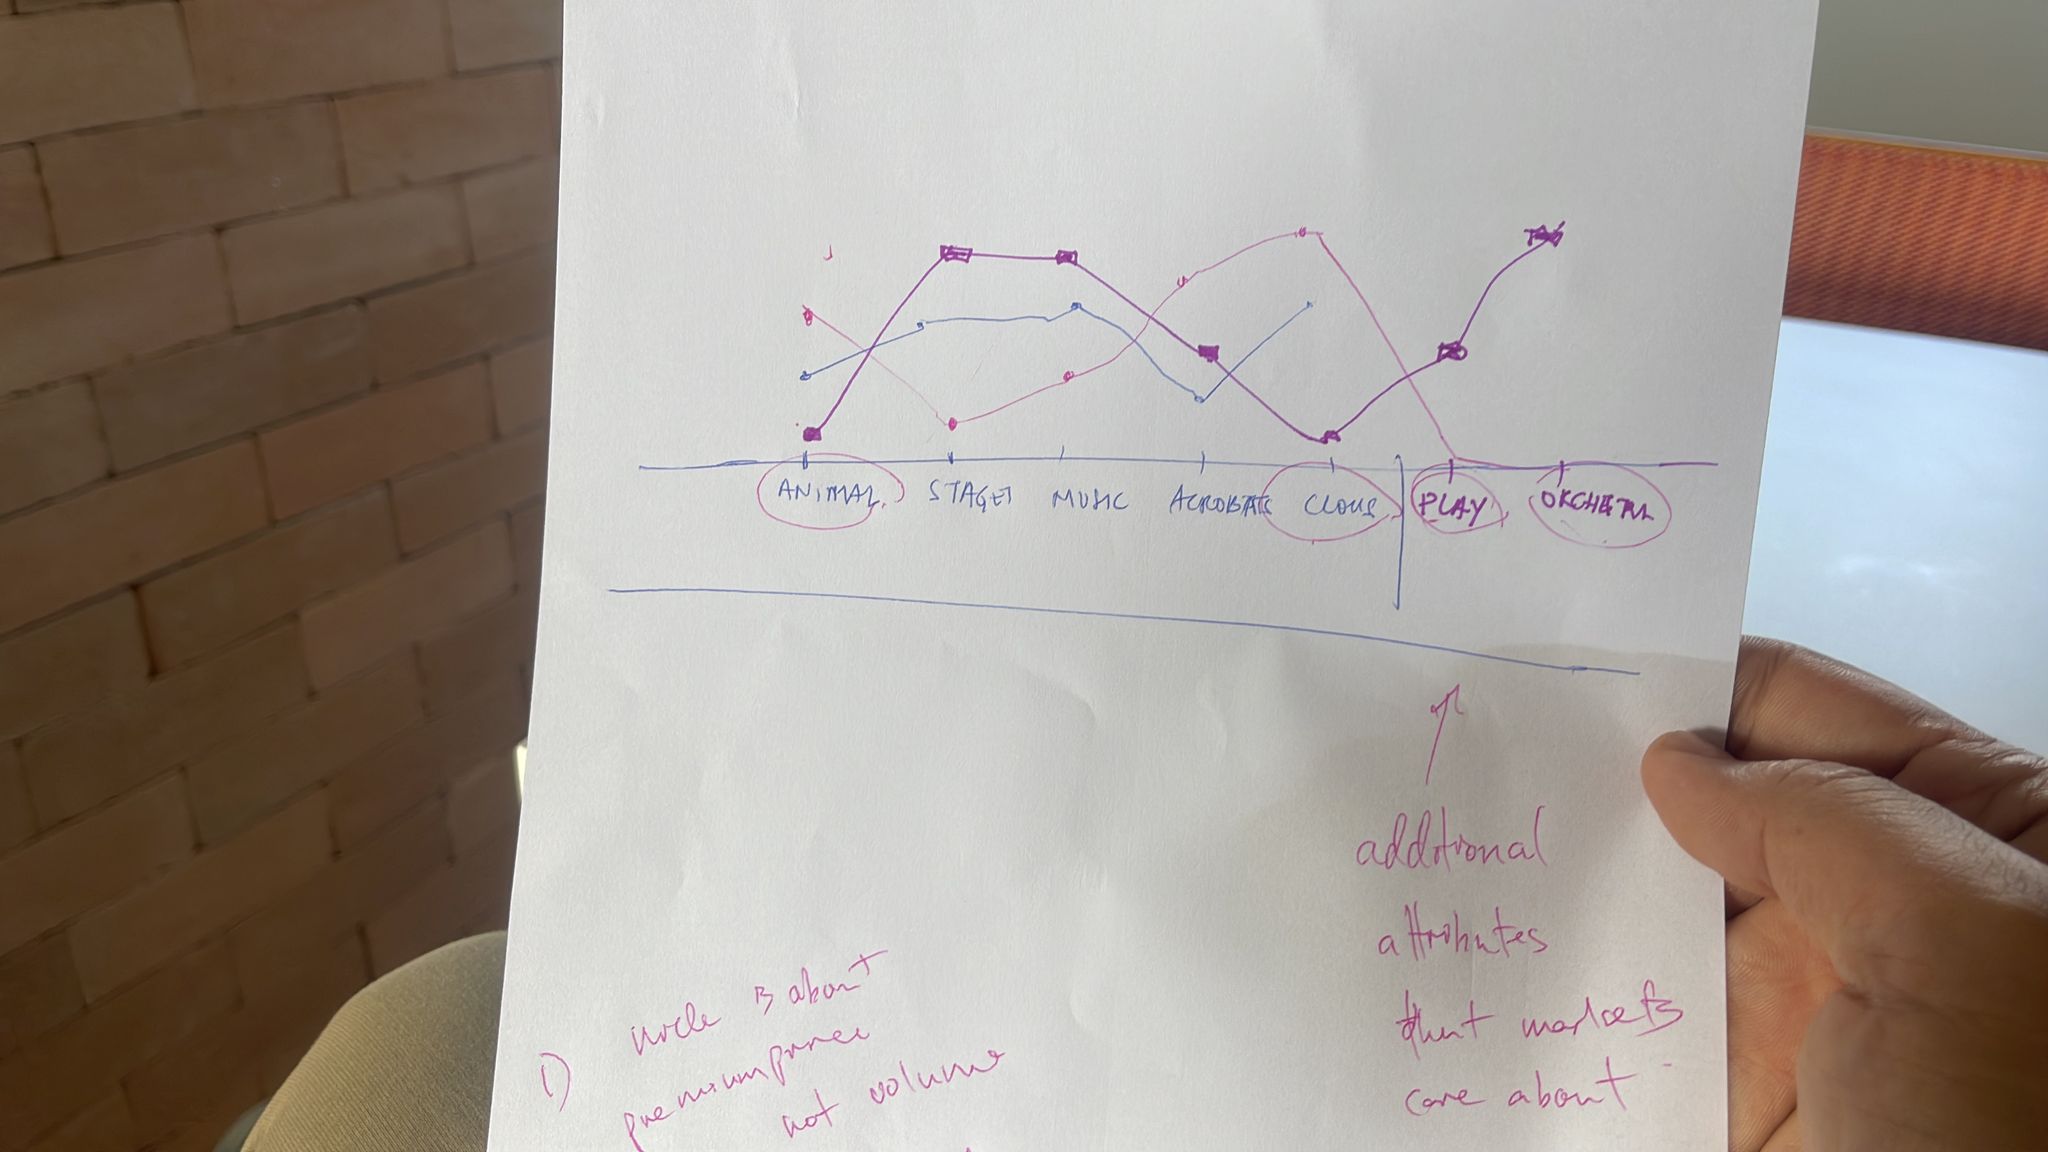 ANIMAL STAGES MUSIC ACROBATS CLOWS PLAY ORCHETRA
additional
attributes
that markets
care about
1) niche is about
premium price
not volume